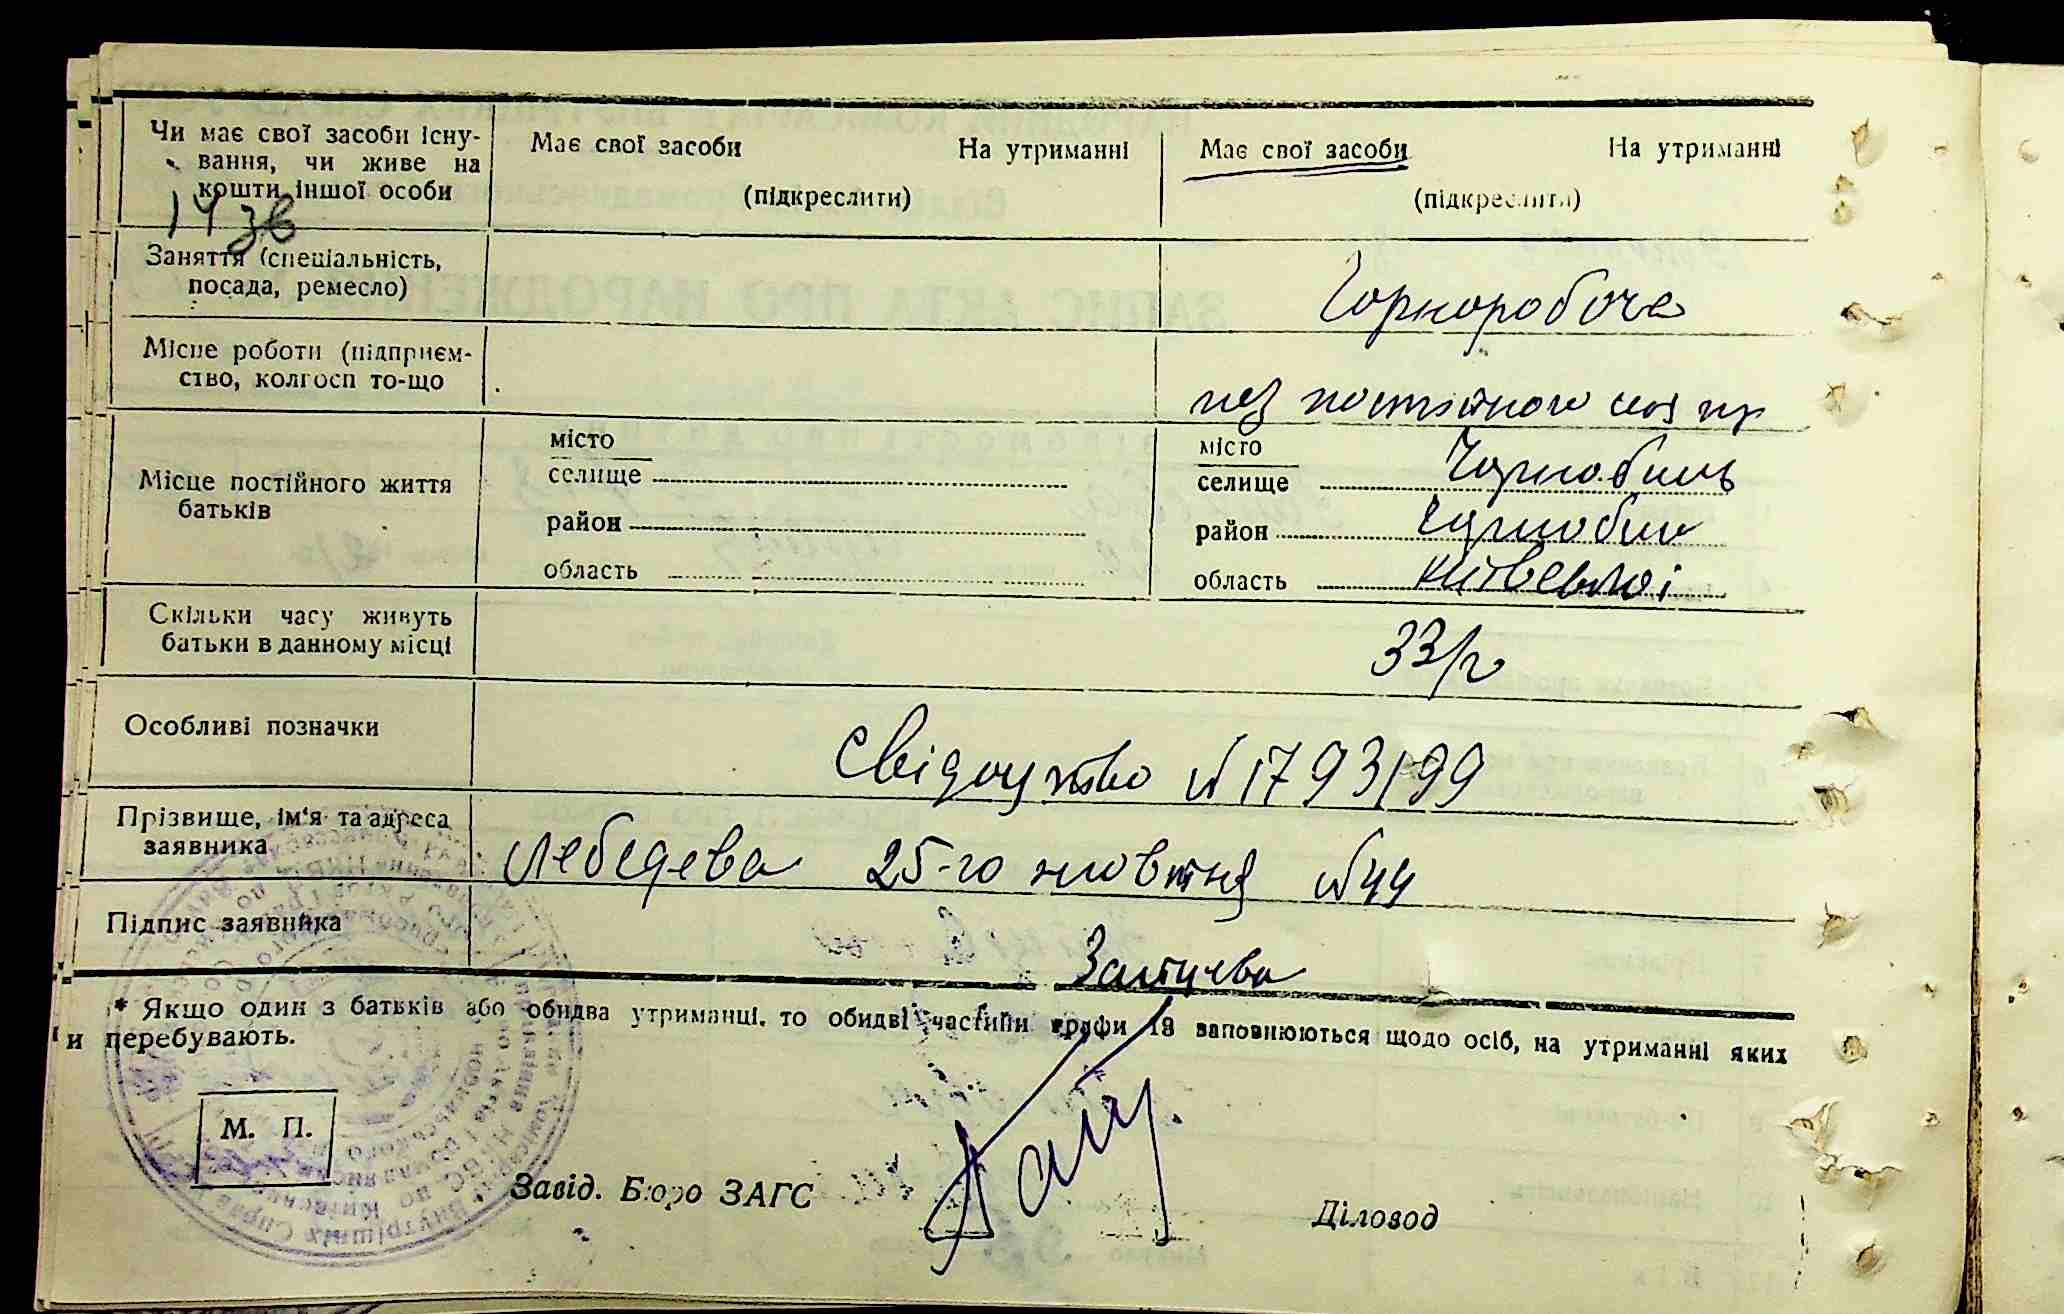 Чи має свої засоби існу-
вання, чи живе на
кошти іншої особи
Має свої засоби На утриманні
(підкреслити)
Має свої засоби На утриманні
(підкреслити)
Заняття (спеціальність,
посада, ремесло)
Чорноробоча
Місце роботи (підприєм-
ство, колгосп то-що
без постійного
Місце постійного життя
батьків
місто
селище
район
область
місто
селище Чорнобиль
район Чорнобиль
область Київської
Скільки часу живуть
батьки в данному місці
33/р
Особливі позначки
Свідоцтво № 1793199
Прізвище, ім'я та адреса
заявника
Лебедева 25-го жовтня № 44
Підпис заявника
* Якщо один з батьків або обидва утриманці, то обидві частини графи 18 заповнюються щодо осіб, на утриманні яких
и перебувають.
М. П.
Завід. Бюро ЗАГС
Діловод